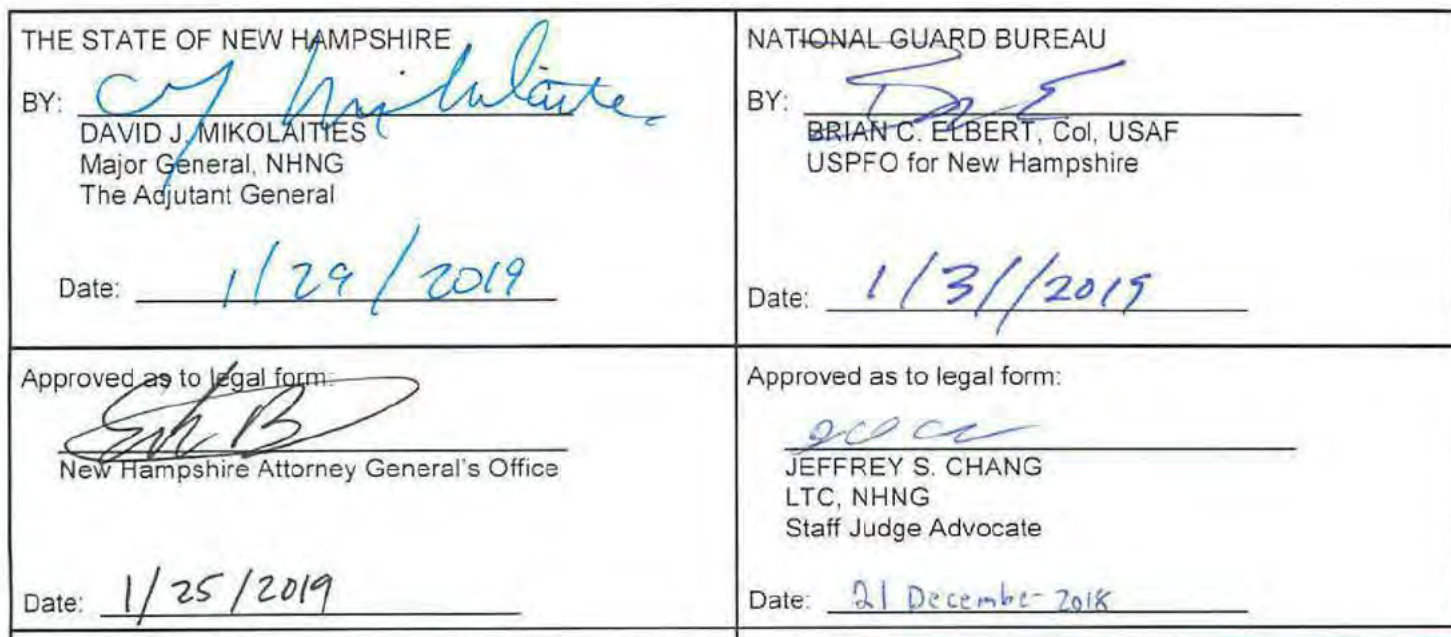 THE STATE OF NEW HAMPSHIRE
BY:
DAVID J. MIKOLAITIES
Major General, NHNG
The Adjutant General
Date: 1/29/2019
NATIONAL GUARD BUREAU
BY:
BRIAN C. ELBERT, Col, USAF
USPFO for New Hampshire
Date: 1/31/2019
Approved as to legal form:
New Hampshire Attorney General's Office
Date: 1/25/2019
Approved as to legal form:
JEFFREY S. CHANG
LTC, NHNG
Staff Judge Advocate
Date: 21 December 2018